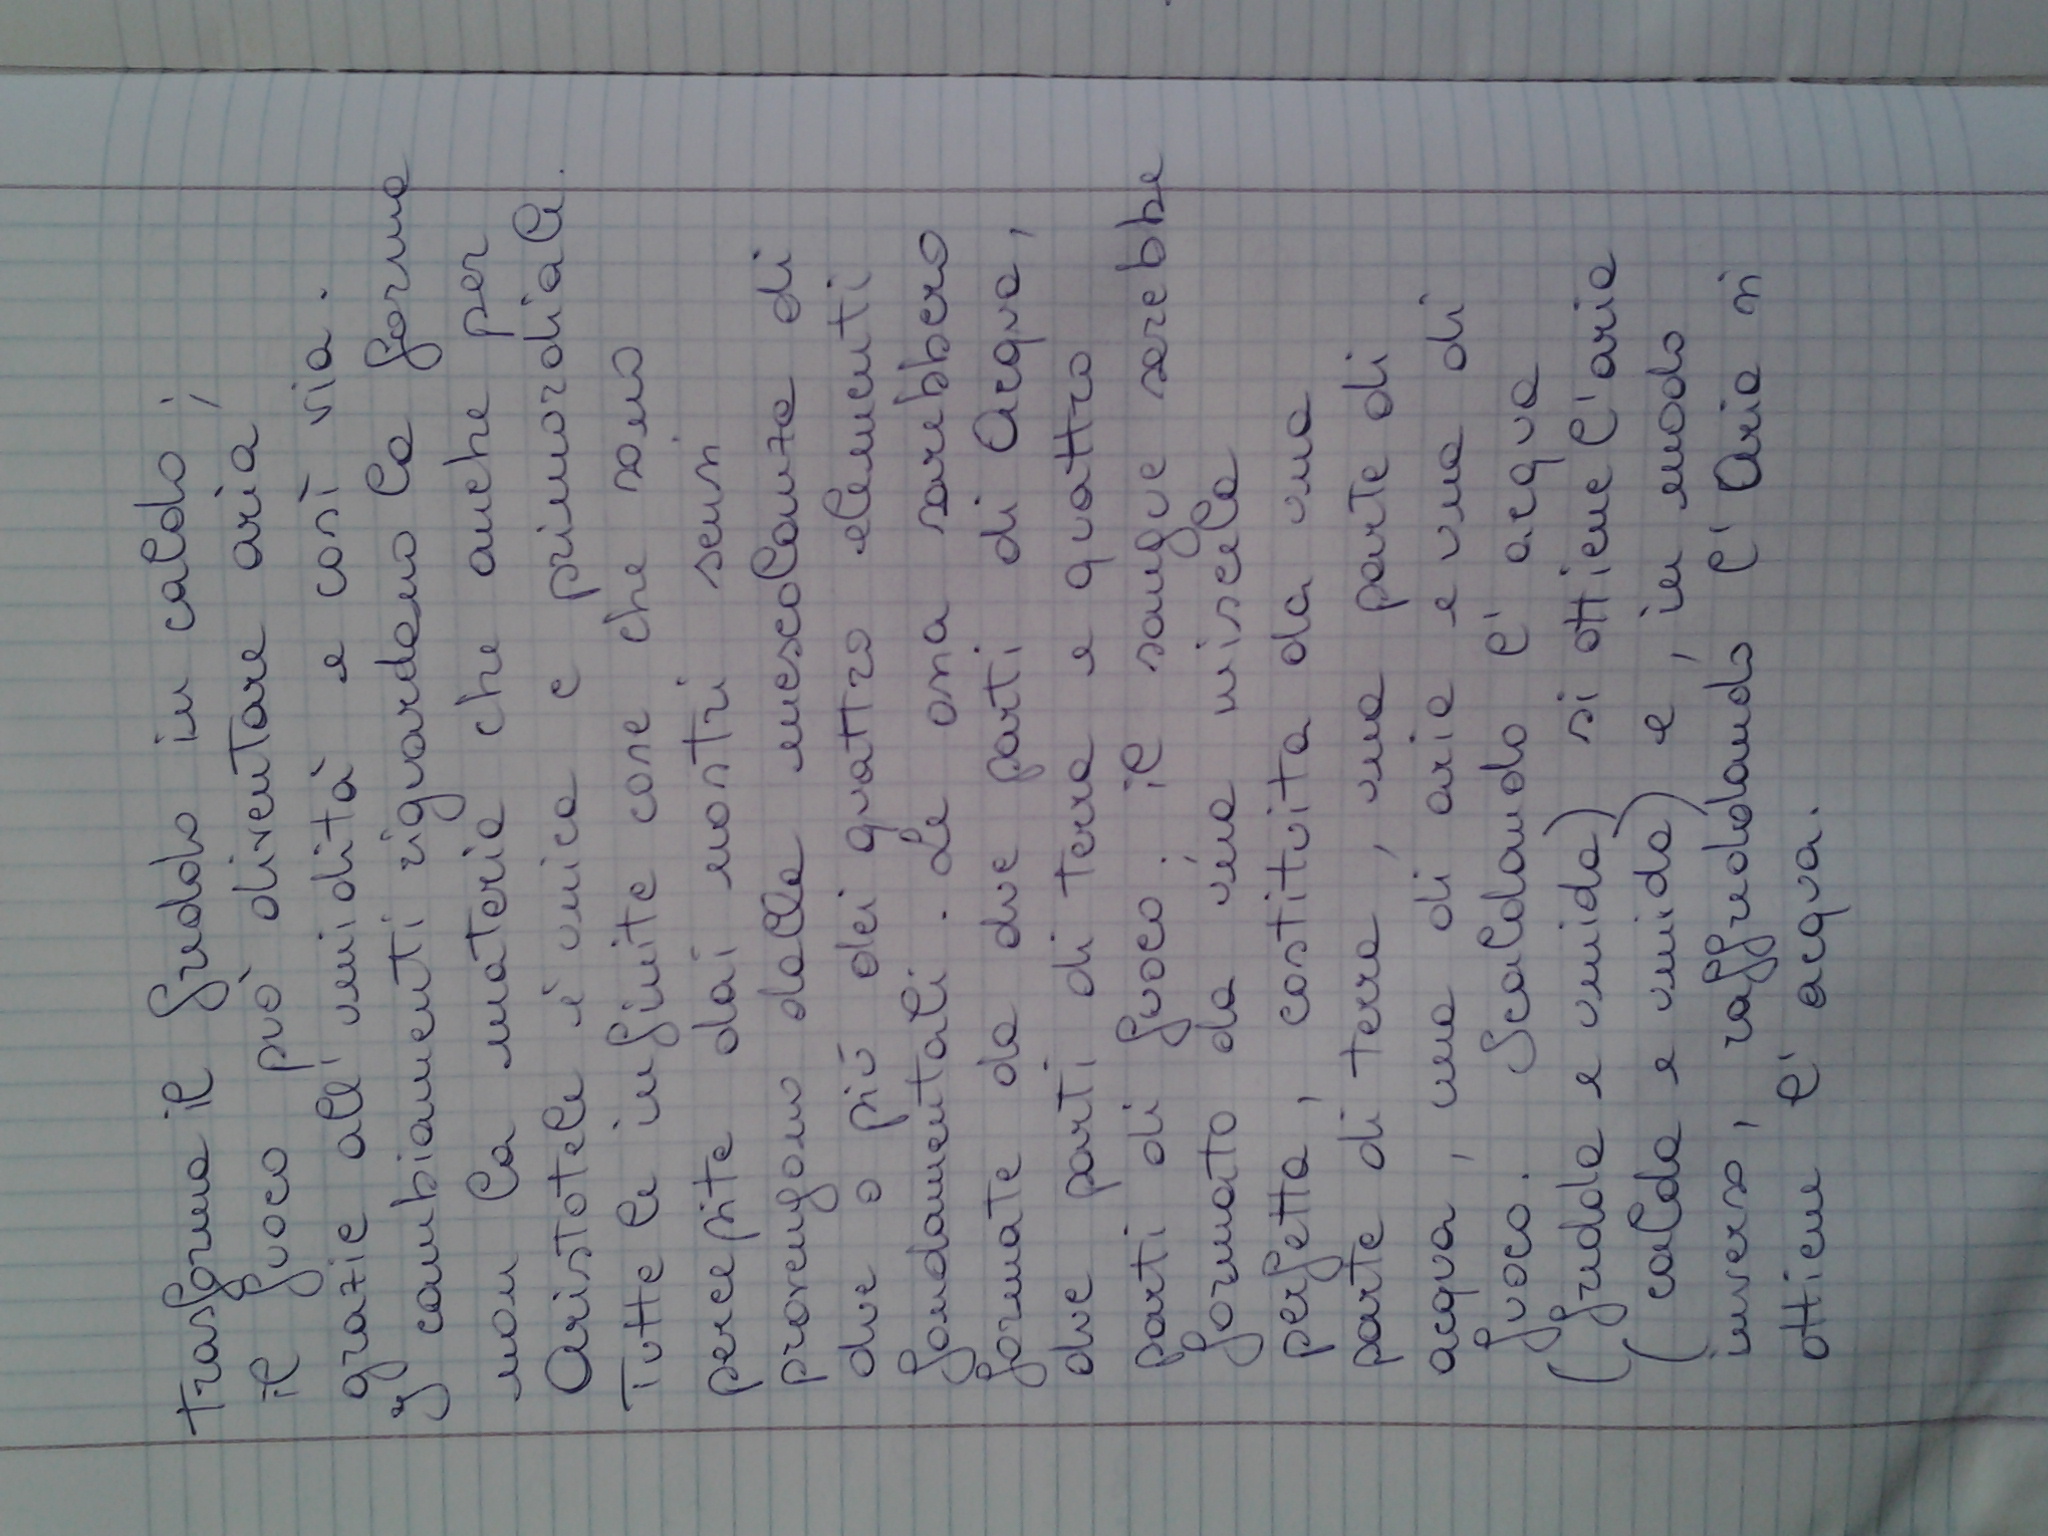 trasforma il freddo in caldo;
il fuoco può diventare aria
grazie all'umidità e così via.
I cambiamenti riguardano la forma
non la materia che anche per
Aristotele è unica e primordiale.
Tutte le infinite cose che sono
percepite dai nostri sensi
provengono dalla mescolanza di
due o più dei quattro elementi
fondamentali. Le ossa sarebbero
formate da due parti di Acqua,
due parti di terra e quattro
parti di fuoco. il sangue sarebbe
formato da una miscela
perfetta, costituita da una
parte di terra, una parte di
acqua, una di aria e una di
fuoco. Scaldando l'acqua
(fredda e umida) si ottiene l'aria
(calda e umida) e, in modo
inverso, raffreddando l'Aria si
ottiene l'acqua.